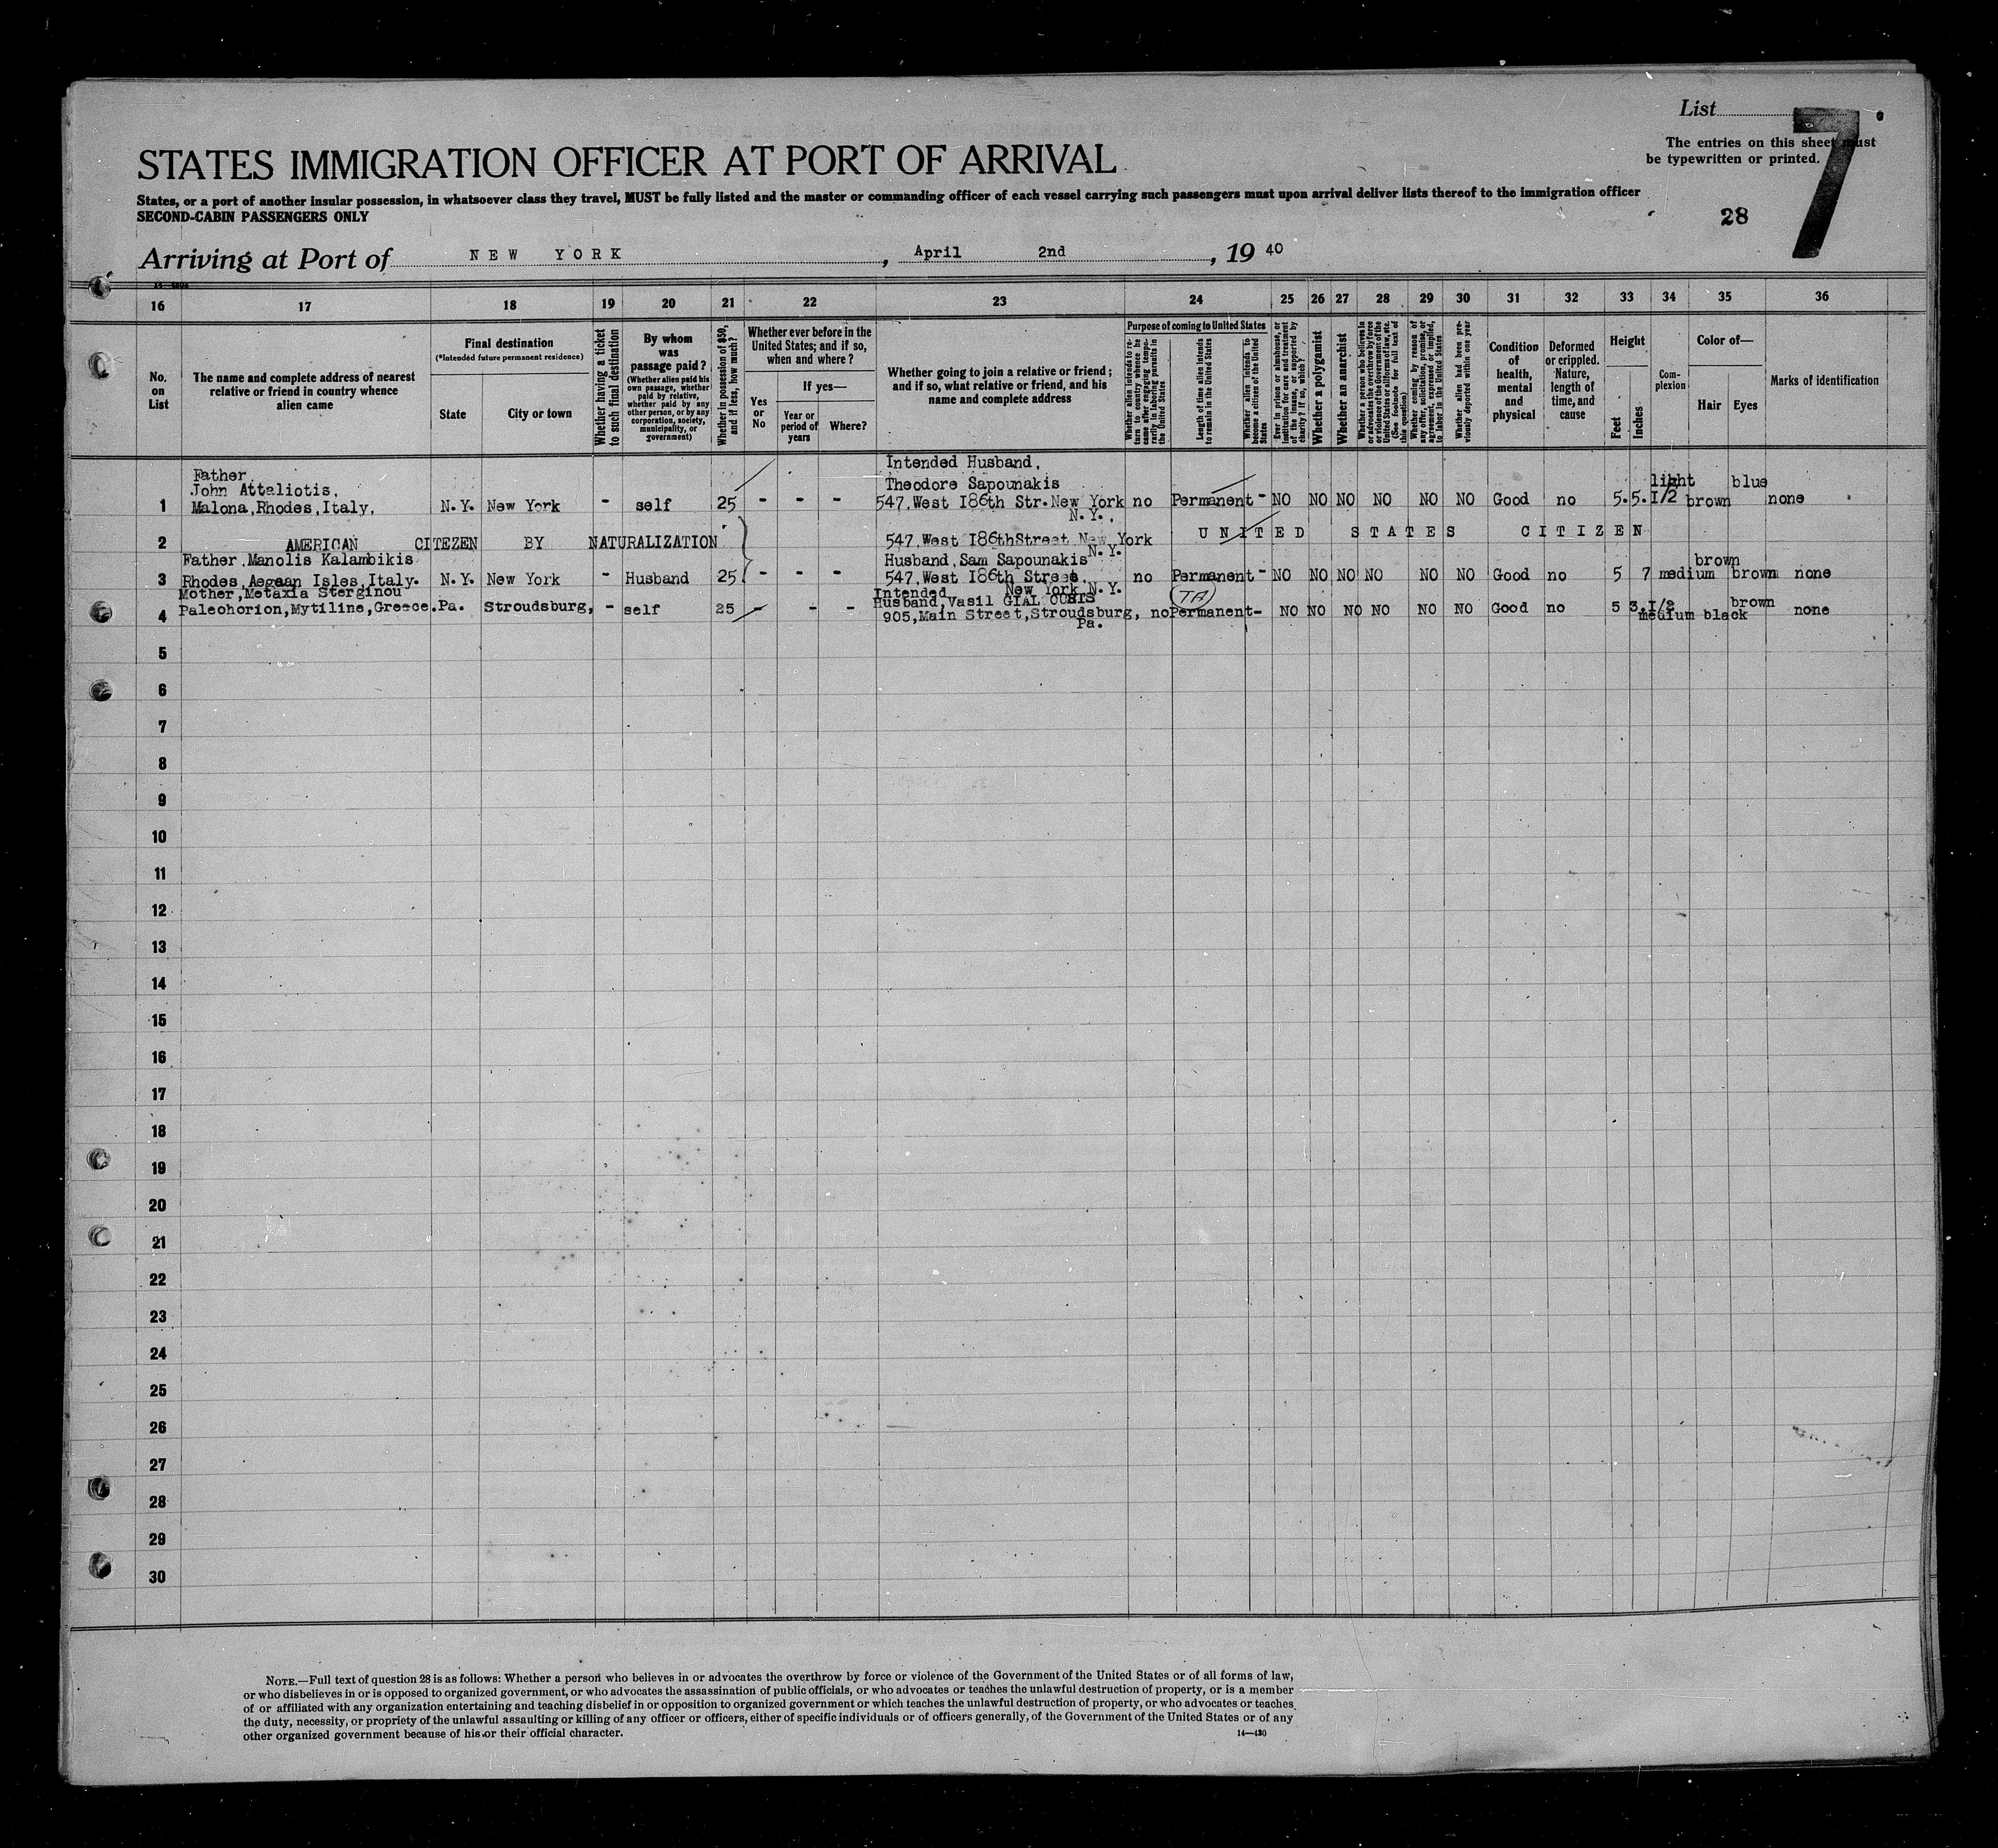 List
7
The entries on this sheet must
be typewritten or printed.
STATES IMMIGRATION OFFICER AT PORT OF ARRIVAL
States, or a port of another insular possession, in whatsoever class they travel, MUST be fully listed and the master or commanding officer of each vessel carrying such passengers must upon arrival deliver lists thereof to the immigration officer
SECOND-CABIN PASSENGERS ONLY
28
Arriving at Port of NEW YORK, April 2nd, 19 40
16 17 18 19 20 21 22 23 24 25 26 27 28 29 30 31 32 33 34 35 36
No. on List
The name and complete address of nearest relative or friend in country whence alien came
Final destination
(*Intended future permanent residence)
State
City or town
Whether having a ticket to such final destination
By whom was passage paid?
(Whether alien paid his own passage, whether paid by relative, whether paid by any other person, or by any corporation, society, municipality, or government)
Whether in possession of $50, and if less, how much?
Whether ever before in the United States; and if so, when and where?
Yes or No
If yes—
Year or period of years
Where?
Whether going to join a relative or friend; and if so, what relative or friend, and his name and complete address
Purpose of coming to United States
Whether alien intends to return to country whence he came after engaging temporarily in laboring pursuits in the United States
Length of time alien intends to remain in the United States
Whether alien intends to become a citizen of the United States
Ever in prison or almshouse, or institution for care and treatment of the insane, or supported by charity? If so, which?
Whether a polygamist
Whether an anarchist
Whether a person who believes in or advocates the overthrow by force or violence of the Government of the United States or all forms of law, etc. (See footnote for full text of this question)
Whether coming by reason of any offer, solicitation, promise, or agreement, expressed or implied, to labor in the United States
Whether alien had been previously deported within one year
Condition of health, mental and physical
Deformed or crippled. Nature, length of time, and cause
Height
Feet
Inches
Complexion
Color of—
Hair
Eyes
Marks of identification
Father
John Attaliotis.
1 Malona,Rhodes,Italy. N.Y. New York - self 25 - - -
Intended Husband.
Theodore Sapounakis
547.West I86th Str.New York
N.Y.
no Permanent - NO NO NO NO NO NO Good no 5.5.I/2 light brown blue none
2 AMERICAN CITEZEN BY NATURALIZATION 547.West I86thStreet New York
N.Y.
UNITED STATES CITIZEN
Father Manolis Kalambikis
3 Rhodes,Aegean Isles,Italy. N.Y. New York - Husband 25 - - -
Husband,Sam Sapounakis
547.West I86th Street.
New York N.Y.
no Permanent - NO NO NO NO NO NO Good no 5 7 medium brown brown none
Mother,Metaxia Sterginou
4 Paleohorion,Mytiline,Greece. Pa. Stroudsburg, - self 25 - - -
Intended
Husband,Vasil GIAL OUSIS
905,Main Street,Stroudsburg,
Pa.
TA
no Permanent- NO NO NO NO NO NO Good no 5 3.I/2 medium black brown none
5
6
7
8
9
10
11
12
13
14
15
16
17
18
19
20
21
22
23
24
25
26
27
28
29
30
NOTE.—Full text of question 28 is as follows: Whether a person who believes in or advocates the overthrow by force or violence of the Government of the United States or of all forms of law,
or who disbelieves in or is opposed to organized government, or who advocates the assassination of public officials, or who advocates or teaches the unlawful destruction of property, or is a member
of or affiliated with any organization entertaining and teaching disbelief in or opposition to organized government or which teaches the unlawful destruction of property, or who advocates or teaches
the duty, necessity, or propriety of the unlawful assaulting or killing of any officer or officers, either of specific individuals or of officers generally, of the Government of the United States or of any
other organized government because of his or their official character.
14—430